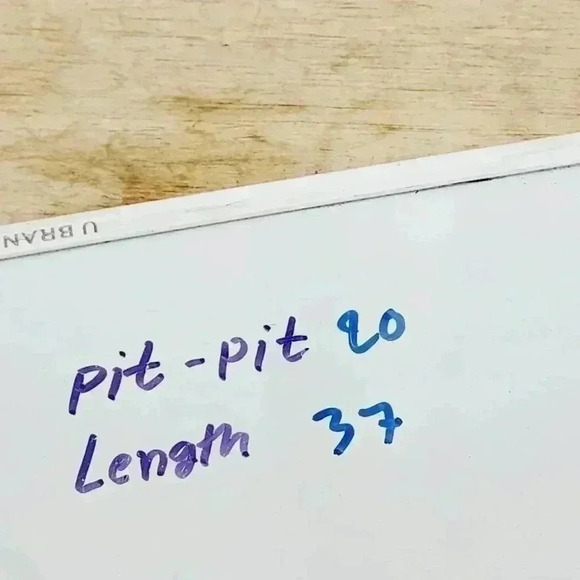 U BRAN
pit - pit 20
Length 37